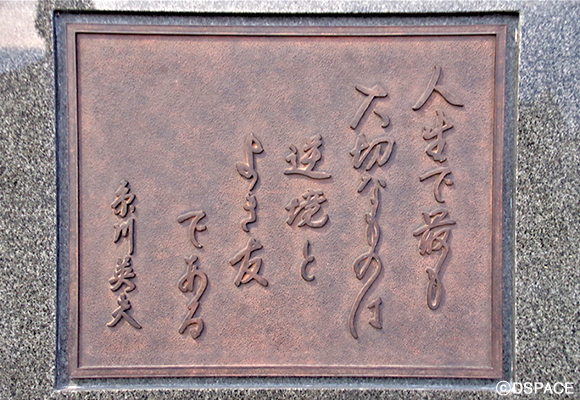 人生で最も
大切なものは
逆境と
よき友
である
糸川英夫
©DSPACE